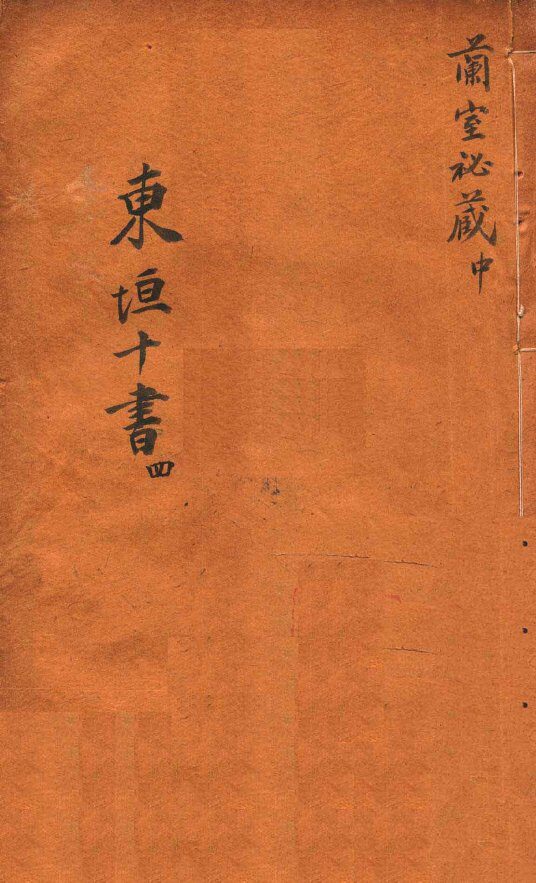 蘭室祕蔵中
東垣十書四